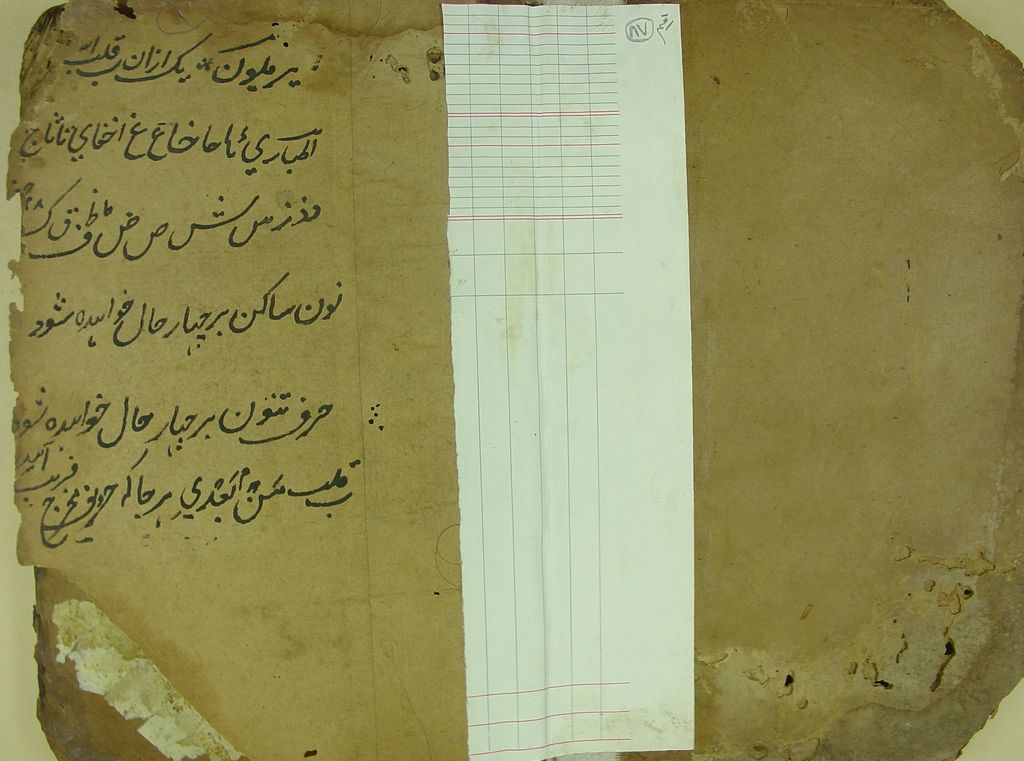 رقم ٨٧
یرملون یک ازان ب قلب
اظهاري ء ها حا خا ع غ اخفاي تا ثا ج
د ذ ز س ش ص ض ط ظ ف ق ک
نون ساکن بر چهار حال خوانده شود
حرف تنون بر چهار حال خوانده شود
قلب من بعدي هر جا که حروف مخرج
قریب آید